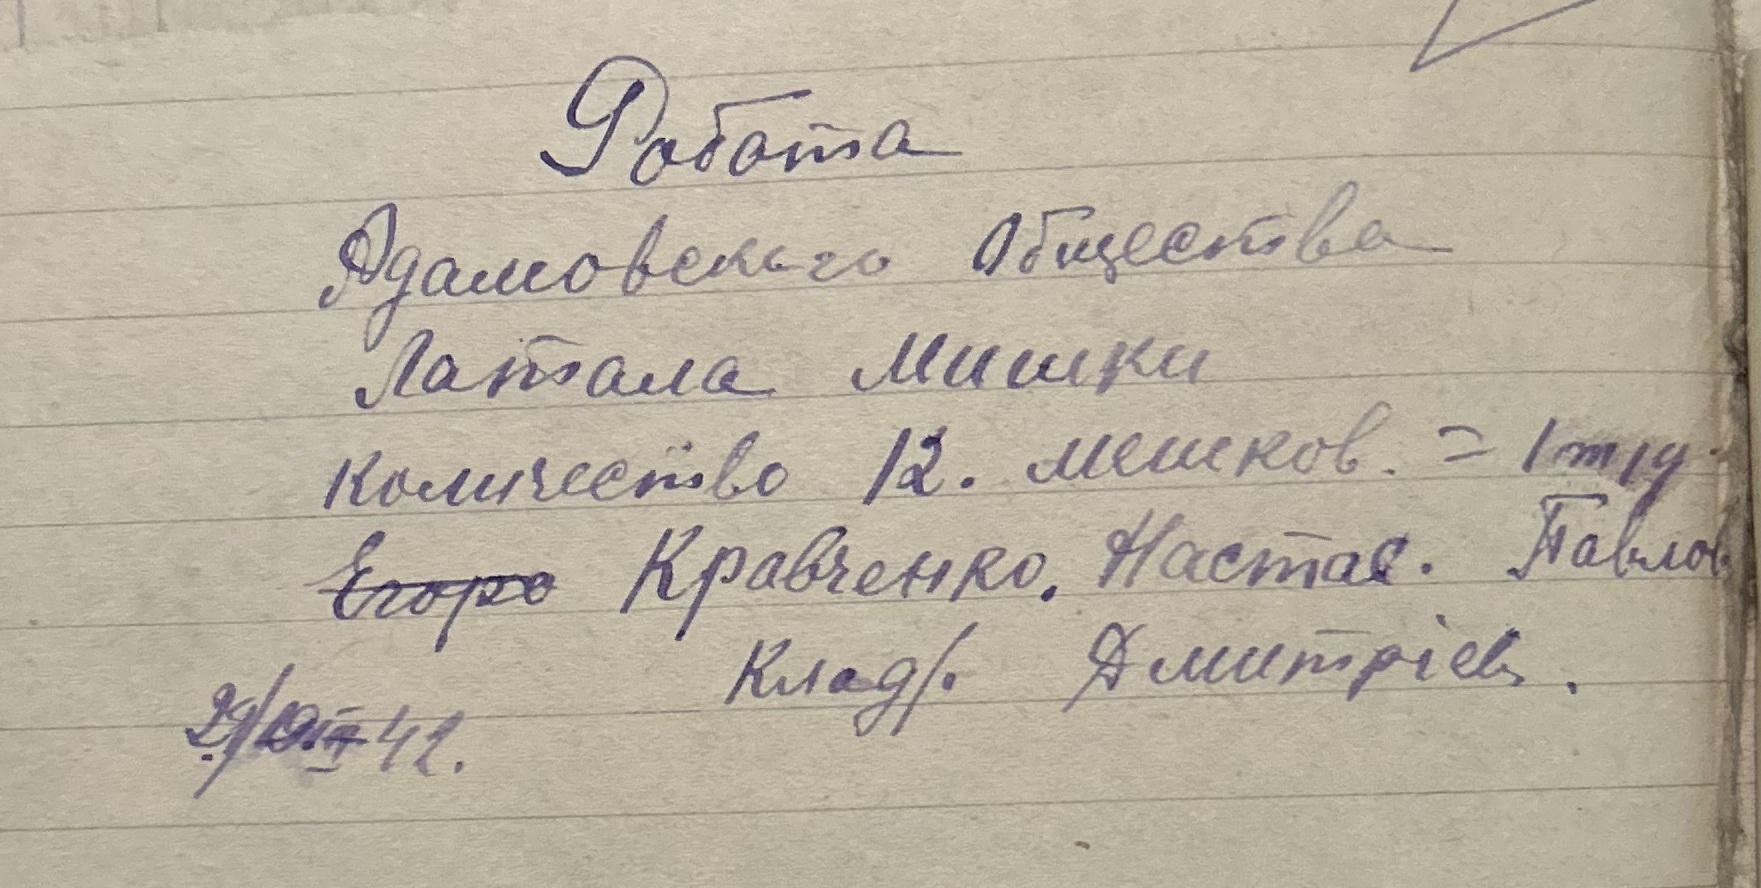 Робота
Адамовского Общества
Латала мишки
количество 12. мешков. = 1 т/д.
Егоро Кравченко. Настас. Павлов
Клад/. Дмитрієв.
29/ 42.